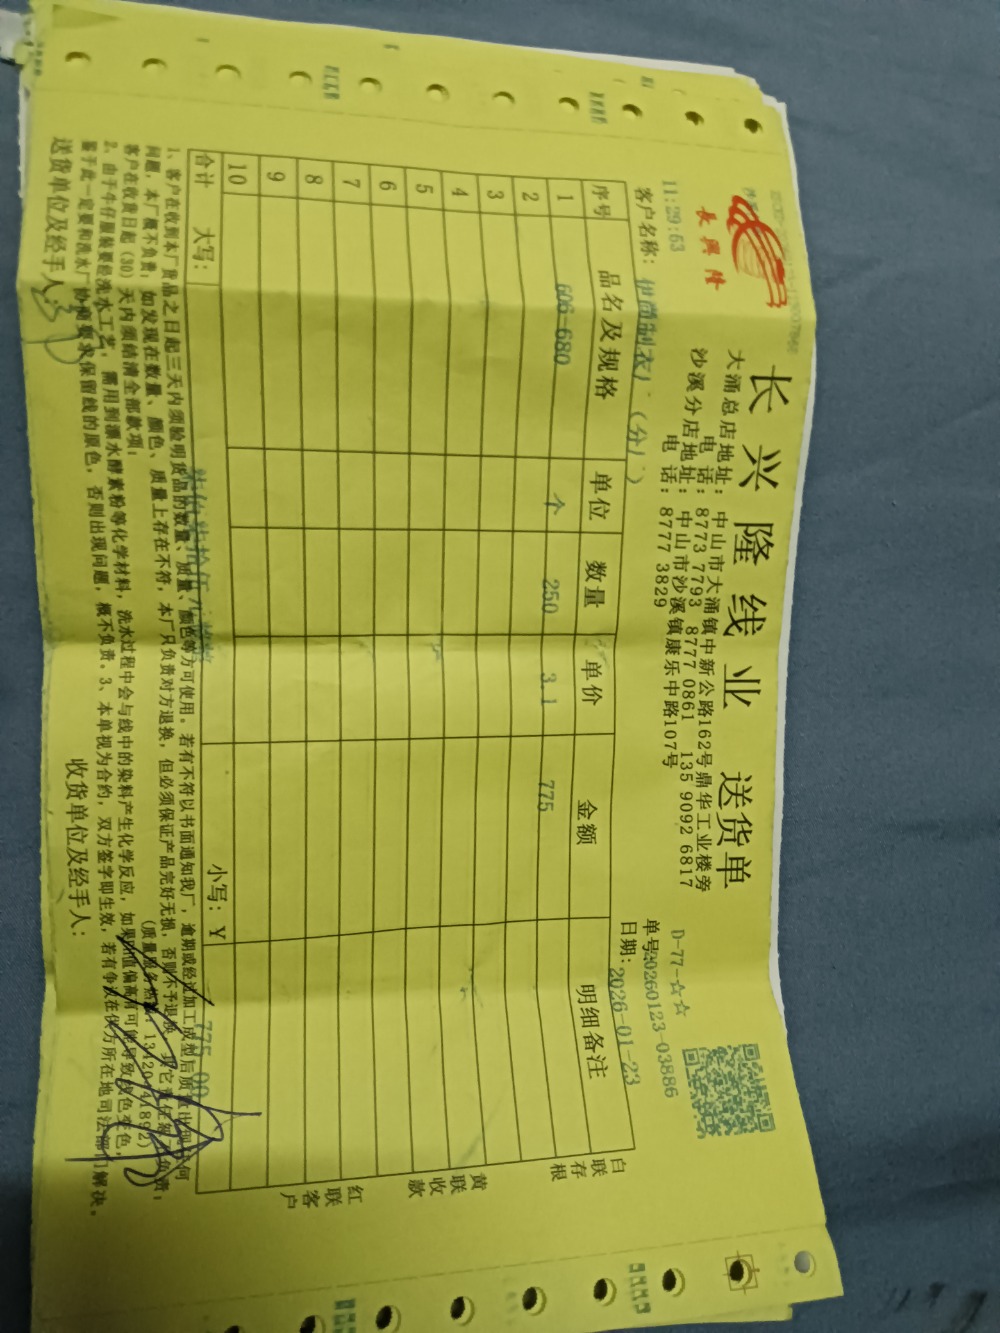 長興隆
长兴隆线业 送货单
大涌总店地址: 中山市大涌镇中新公路162号鼎华工业楼旁
电 话: 8773 7793 8777 0861 135 9092 6817
沙溪分店地址: 中山市沙溪镇康乐中路107号
电 话: 8777 3829
D-77-☆☆
单号20260123-03886
11:29:53
客户名称: 伊尚制衣厂(分厂)
日期: 2026-01-23
序号 品名及规格 单位 数量 单价 金额 明细备注
1 606-680 个 250 3.1 775
2
3
4
5
6
7
8
9
10
合计 大写: 柒佰柒拾伍元 小写: ¥ 775.00
白联存根
黄联收款
红联客户
1、客户在收到本厂货品之日起三天内须验明货品的数量、质量、颜色等方可使用。若有不符以书面通知我厂,逾期或经过加工成型后质量出现任何
问题,本厂概不负责;如发现在数量、颜色、质量上存在不符,本厂只负责对方退换,但必须保证产品完好无损,否则不予退换,其它责任概不负责;
客户在收货日起(30)天内须结清全部款项; (质量服务热线:13420141892)
2、由于牛仔服装要经洗水工艺,需用到漂水酵素粉等化学材料,洗水过程中会与线中的染料产生化学反应,如果PH值偏高有可能导致线色变色,
鉴于此一定要和洗水厂协商要求保留线的原色,否则出现问题,概不负责。3、本单视为合约,双方签字即生效,若有争议在供方所在地司法部门解决。
送货单位及经手人: 收货单位及经手人: